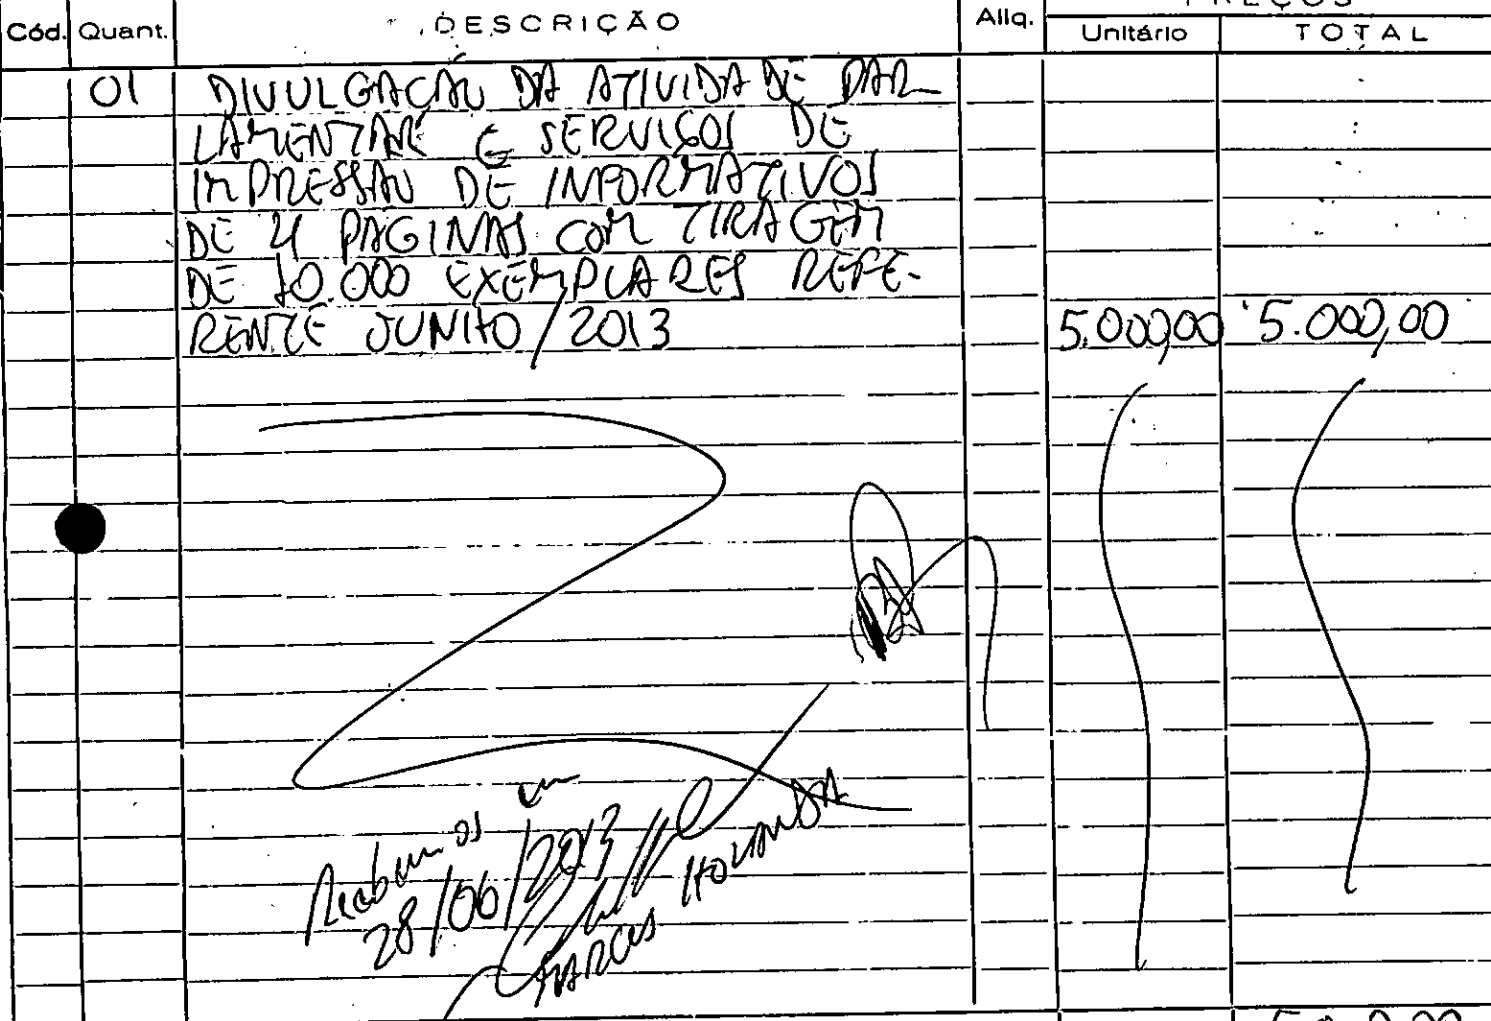 PREÇOS
Cód. Quant. DESCRIÇÃO Alíq. Unitário TOTAL
01 DIVULGAÇÃO DA ATIVIDADE PAR
LAMENTAR E SERVIÇOS DE
IMPRESSÃO DE INFORMATIVOS
DE 4 PÁGINAS COM TIRAGEM
DE 10.000 EXEMPLARES REFE-
RENTE JUNHO/2013 5.000,00 5.000,00
Recebemos em
28/06/2013
MARCUS HOLANDA